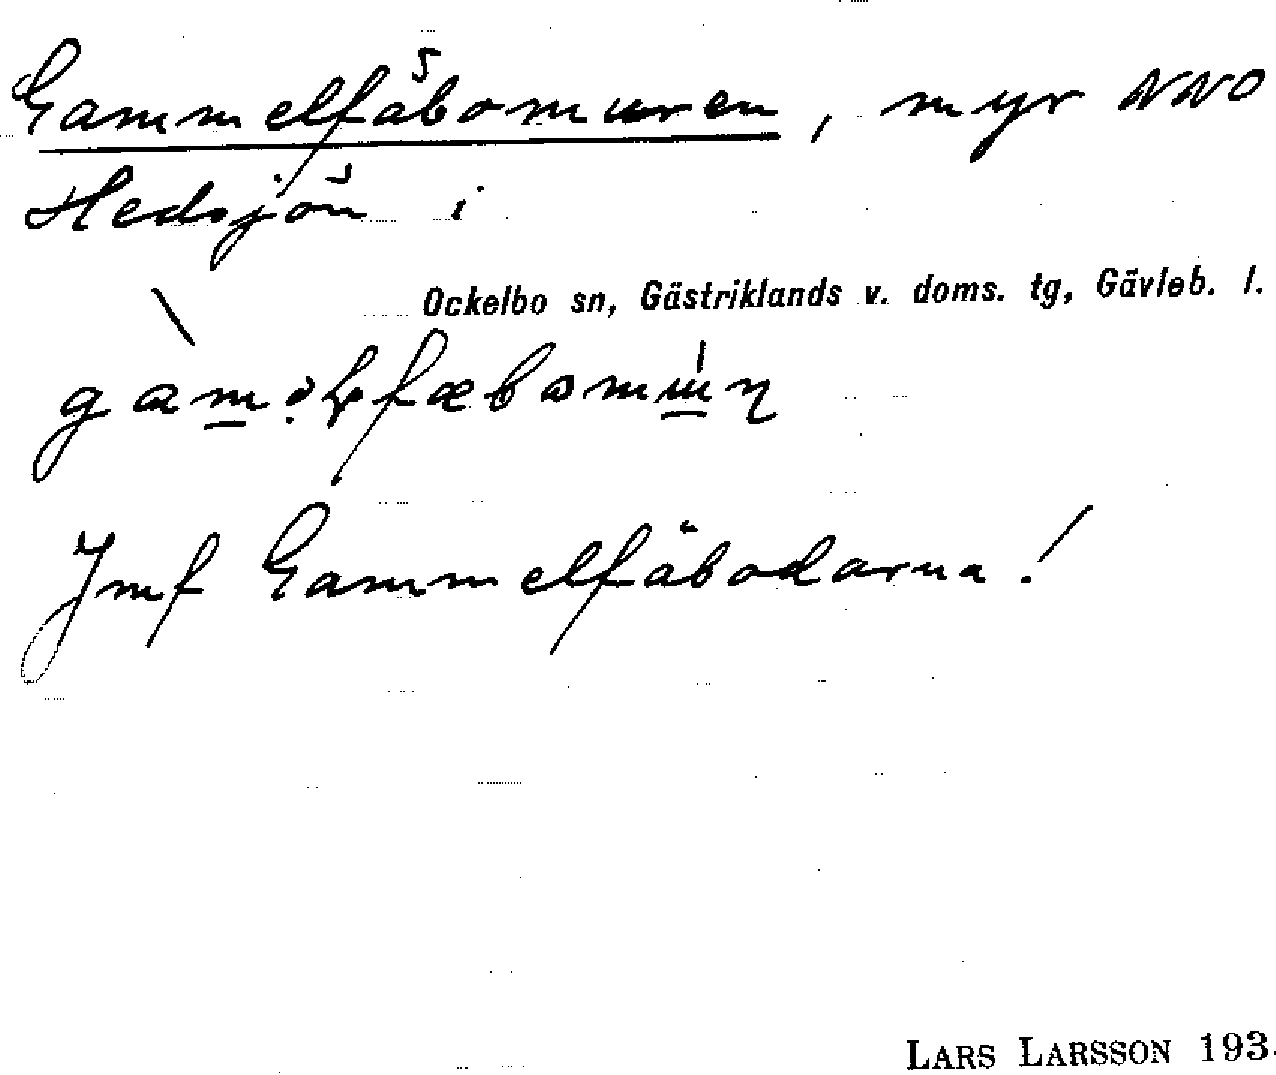 Gammelfäbomuren, myr NNO
Hedsjön i
Ockelbo sn, Gästriklands v. doms. tg, Gävleb. l.
Jmf Gammelfäbodarna!
LARS LARSSON 193